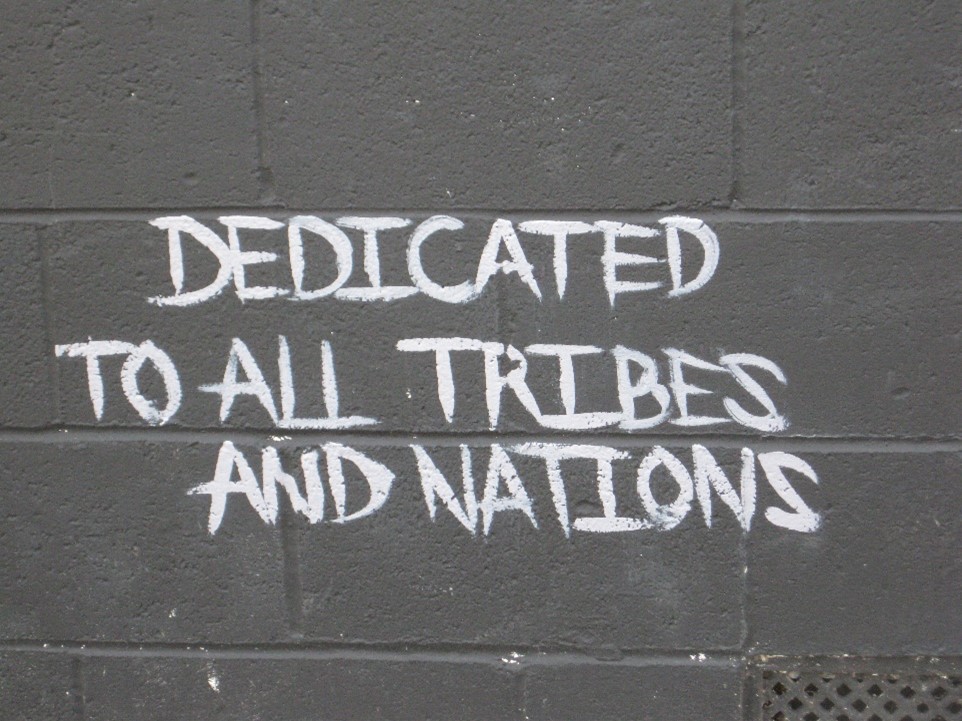 DEDICATED
TO ALL TRIBES
AND NATIONS